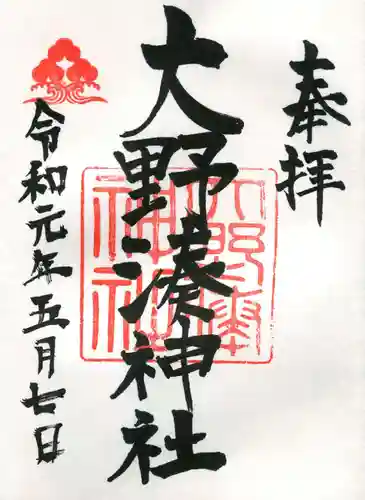 奉拝
大野湊神社
令和元年五月七日
大野湊神社